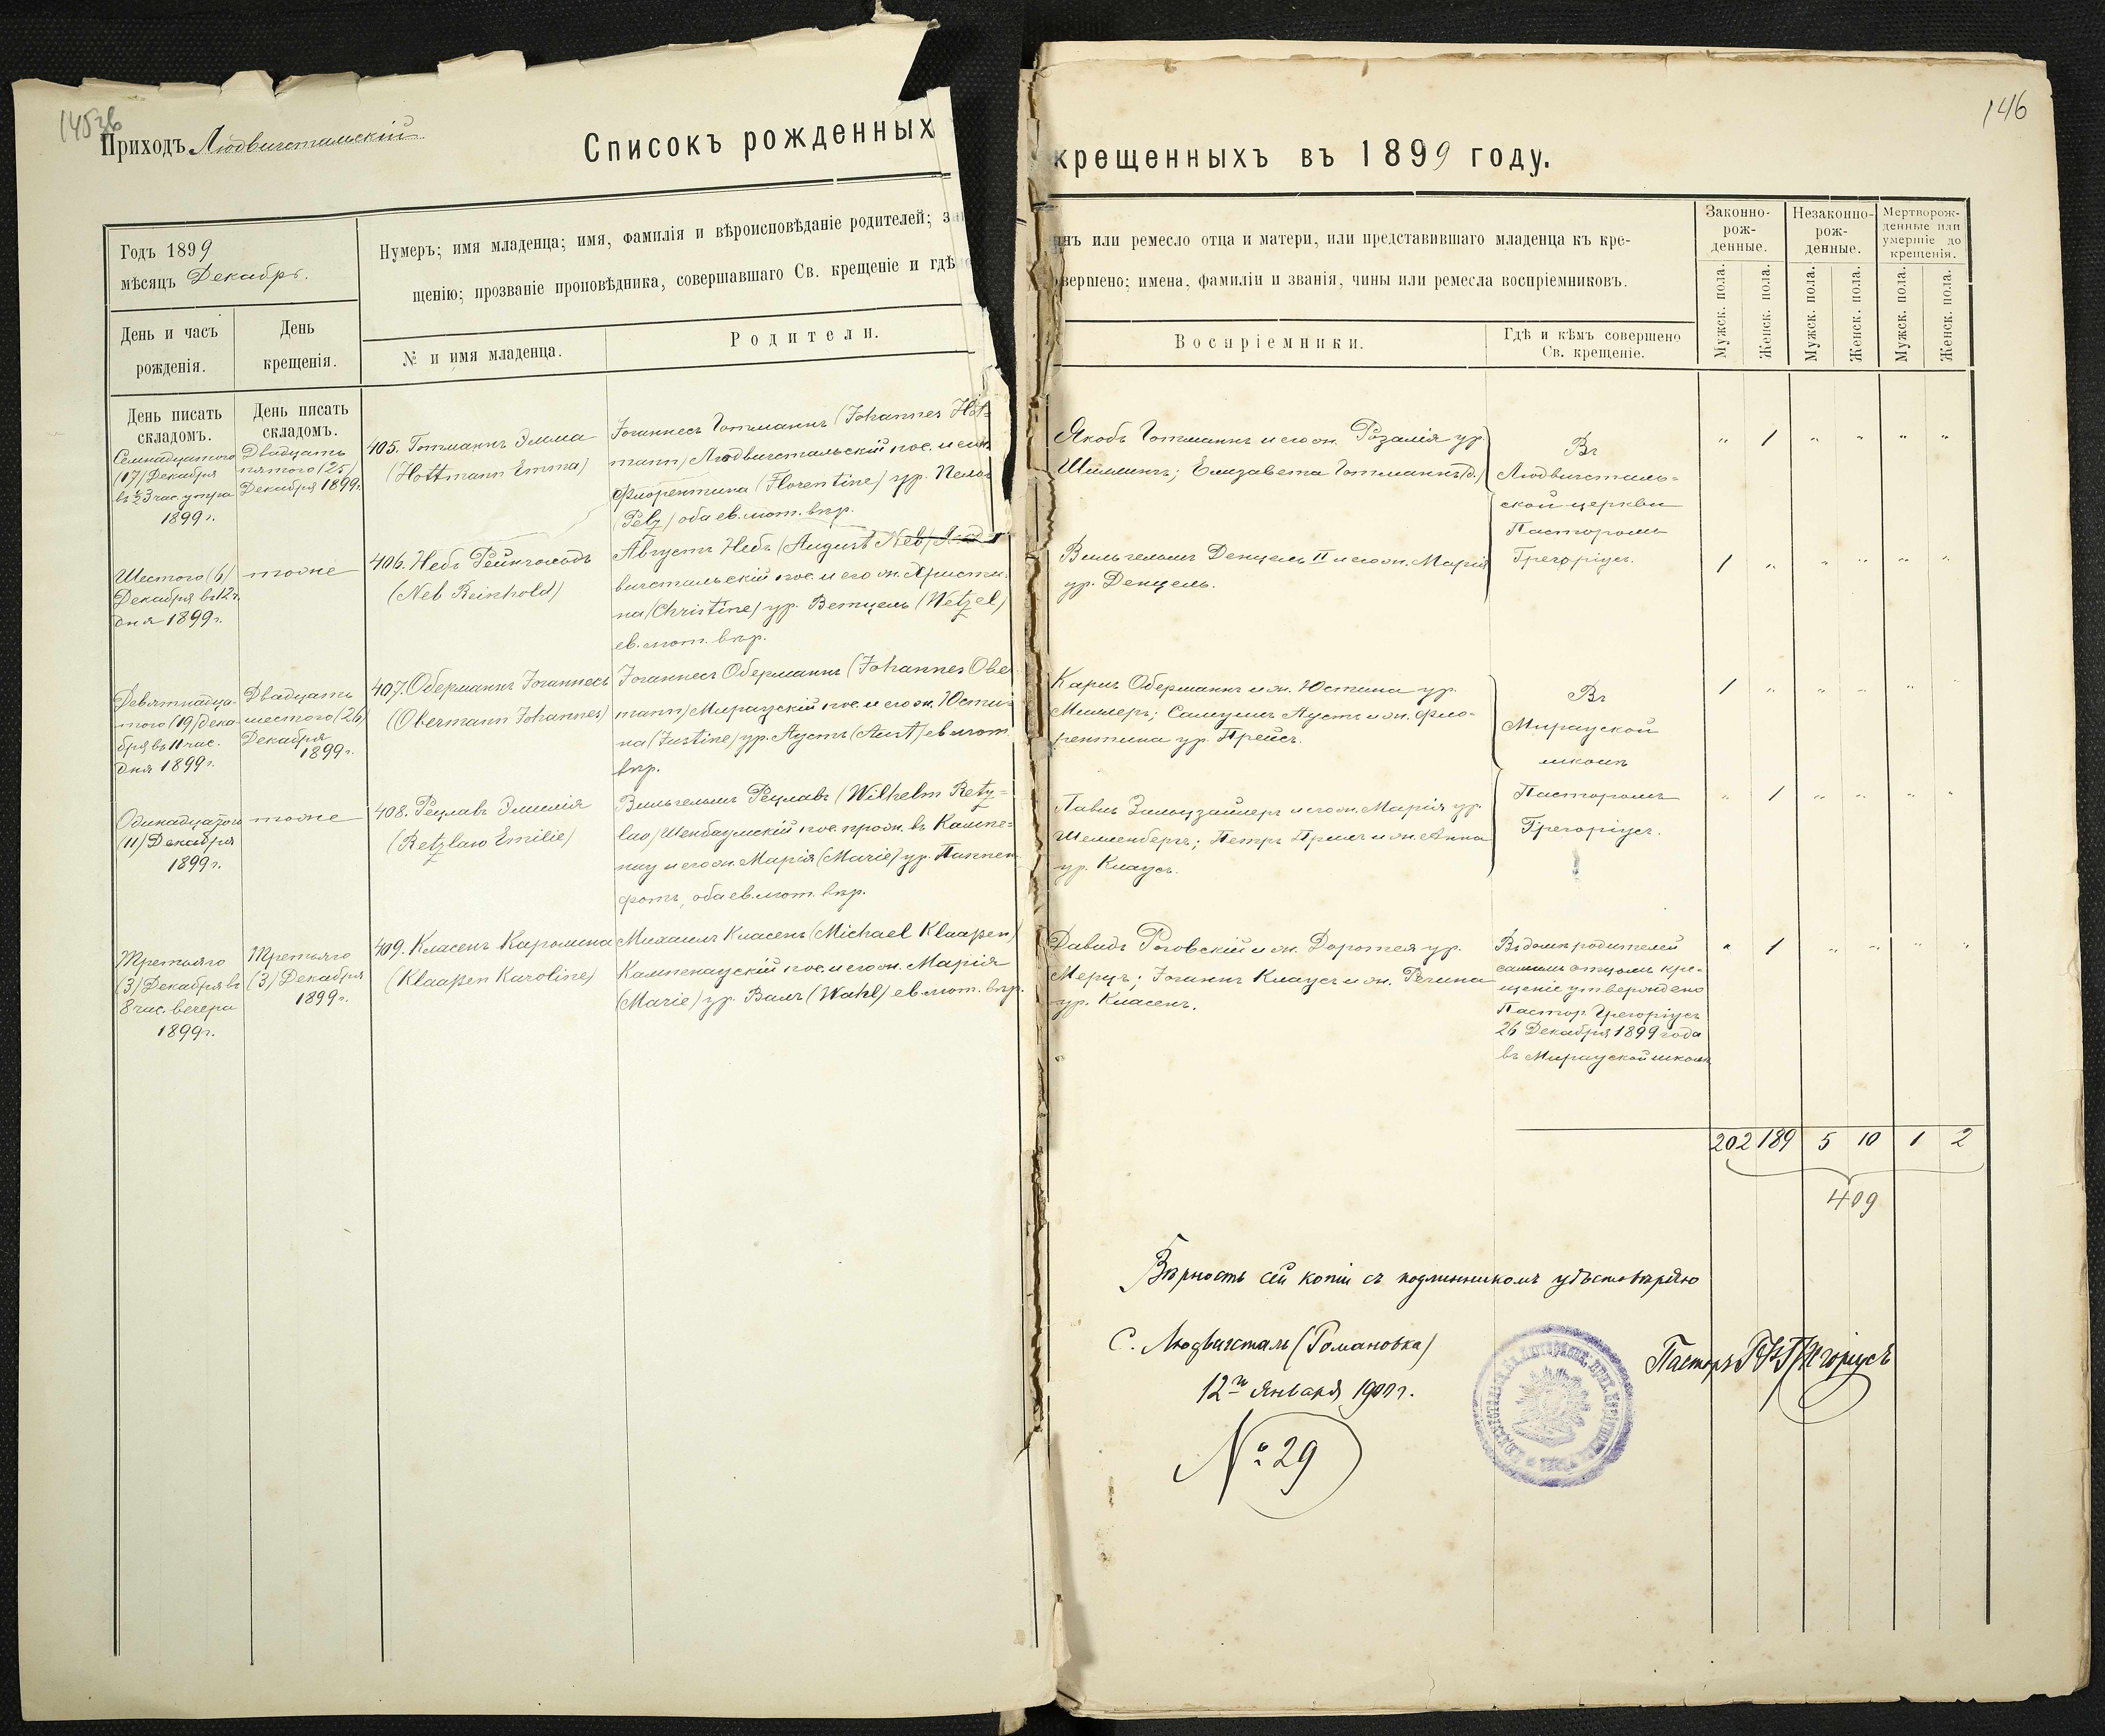 145об
146
Приходъ Людвигстальскій
Списокъ рожденныхъ
крещенныхъ въ 1899 году.
Годъ 1899
мѣсяцъ Декабрь.
Нумеръ; имя младенца; имя, фамилія и вѣроисповѣданіе родителей;
щенію; прозваніе проповѣдника, совершавшаго Св. крещеніе и гдѣ
или ремесло отца и матери, или представившаго младенца къ кре-
вершено; имена, фамиліи и званія, чины или ремесла воспріемниковъ.
День и часъ
рожденія.
День
крещенія.
№ и имя младенца.
Родители.
Воспріемники.
Гдѣ и кѣмъ совершено
Св. крещеніе.
Законно-
рож-
денные.
Незаконно-
рож-
денные.
Мертворож-
денные или
умершіе до
крещенія.
Мужск. пола.
Женск. пола.
Мужск. пола.
Женск. пола.
Мужск. пола.
Женск. пола.
День писать
складомъ.
День писать
складомъ.
Семнадцатого
(17) Декабря
въ ½3 час. утра
1899 г.
Двадцать
пятого (25)
Декабря 1899 г.
405. Готманнъ Эмма
(Hottmann Emma)
Іоганнесъ Готманнъ (Johannes Hot-
mann) Людвигстальскій пос. и его ж.
Флорентина (Florentine) ур. Пельц
(Pelz) оба ев. лют. вѣр.
Якобъ Готманнъ и его ж. Розалія ур.
Шиллингъ; Елизавета Готманнъ (д.)
Въ
Людвигсталь-
ской церкви
Пасторомъ
Грегоріусъ.
" 1 " " " "
Шестого (6)
Декабря въ 12 ч.
дня 1899 г.
тоже
406. Небъ Рейнгольдъ
(Neb Reinhold)
Августъ Небъ (August Neb) Люд
вигстальскій пос. и его ж. Христи-
на (Christine) ур. Ветцель (Wetzel)
ев. лют. вѣр.
Вильгельмъ Денцель II и его ж. Марія
ур. Денцель.
1 " " " " "
Девятнадца-
того (19) Дека-
бря въ 11 час.
дня 1899 г.
Двадцать
шестого (26)
Декабря
1899 г.
407. Оберманнъ Іоганнесъ
(Obermann Johannes)
Іоганнесъ Оберманнъ (Johannes Ober
mann) Мираускій пос. и его ж. Юсти-
на (Justine) ур. Аустъ (Aust) ев. лют.
вѣр.
Карлъ Оберманнъ и ж. Юстина ур.
Миллеръ; Самуилъ Аустъ и ж. Фло-
рентина ур. Прейсъ.
Въ
Мирауской
школѣ
Пасторомъ
Грегоріусъ.
1 " " " " "
Одинадцатого
(11) Декабря
1899 г.
тоже
408. Рецлавъ Эмилія
(Retzlaw Emilie)
Вильгельмъ Рецлавъ (Wilhelm Retz-
law) Шенбаумскій пос. прож. въ Кампе-
нау и его ж. Марія (Marie) ур. Паппен
фотъ, оба ев. лют. вѣр.
Павлъ Зальцзайлеръ и его ж. Марія ур.
Шелленбергъ; Петръ Примъ и ж. Анна
ур. Клаусъ.
" 1 " " " "
Третьяго
(3) Декабря въ
8 час. вечера
1899 г.
Третьяго
(3) Декабря
1899 г.
409. Класенъ Каролина
(Klaaßen Karoline)
Михаилъ Класенъ (Michael Klaaßen)
Кампенаускій пос. и его ж. Марія
(Marie) ур. Валъ (Wahl) ев. лют. вѣр.
Давидъ Роговскій и ж. Доротея ур.
Мерцъ; Іоганнъ Клаусъ и ж. Регина
ур. Класенъ.
Въ домѣ родителей
самимъ отцомъ кре-
щеніе утверждено
Пастор. Грегоріусъ
26 Декабря 1899 года
въ Мирауской школѣ
" 1 " " " "
202 189 5 10 1 2
409
Вѣрность сей копіи съ подлинникомъ удъстовѣряю
С. Людвигсталь (Романовка)
12го Января 1900 г.
Пасторъ
№ 29